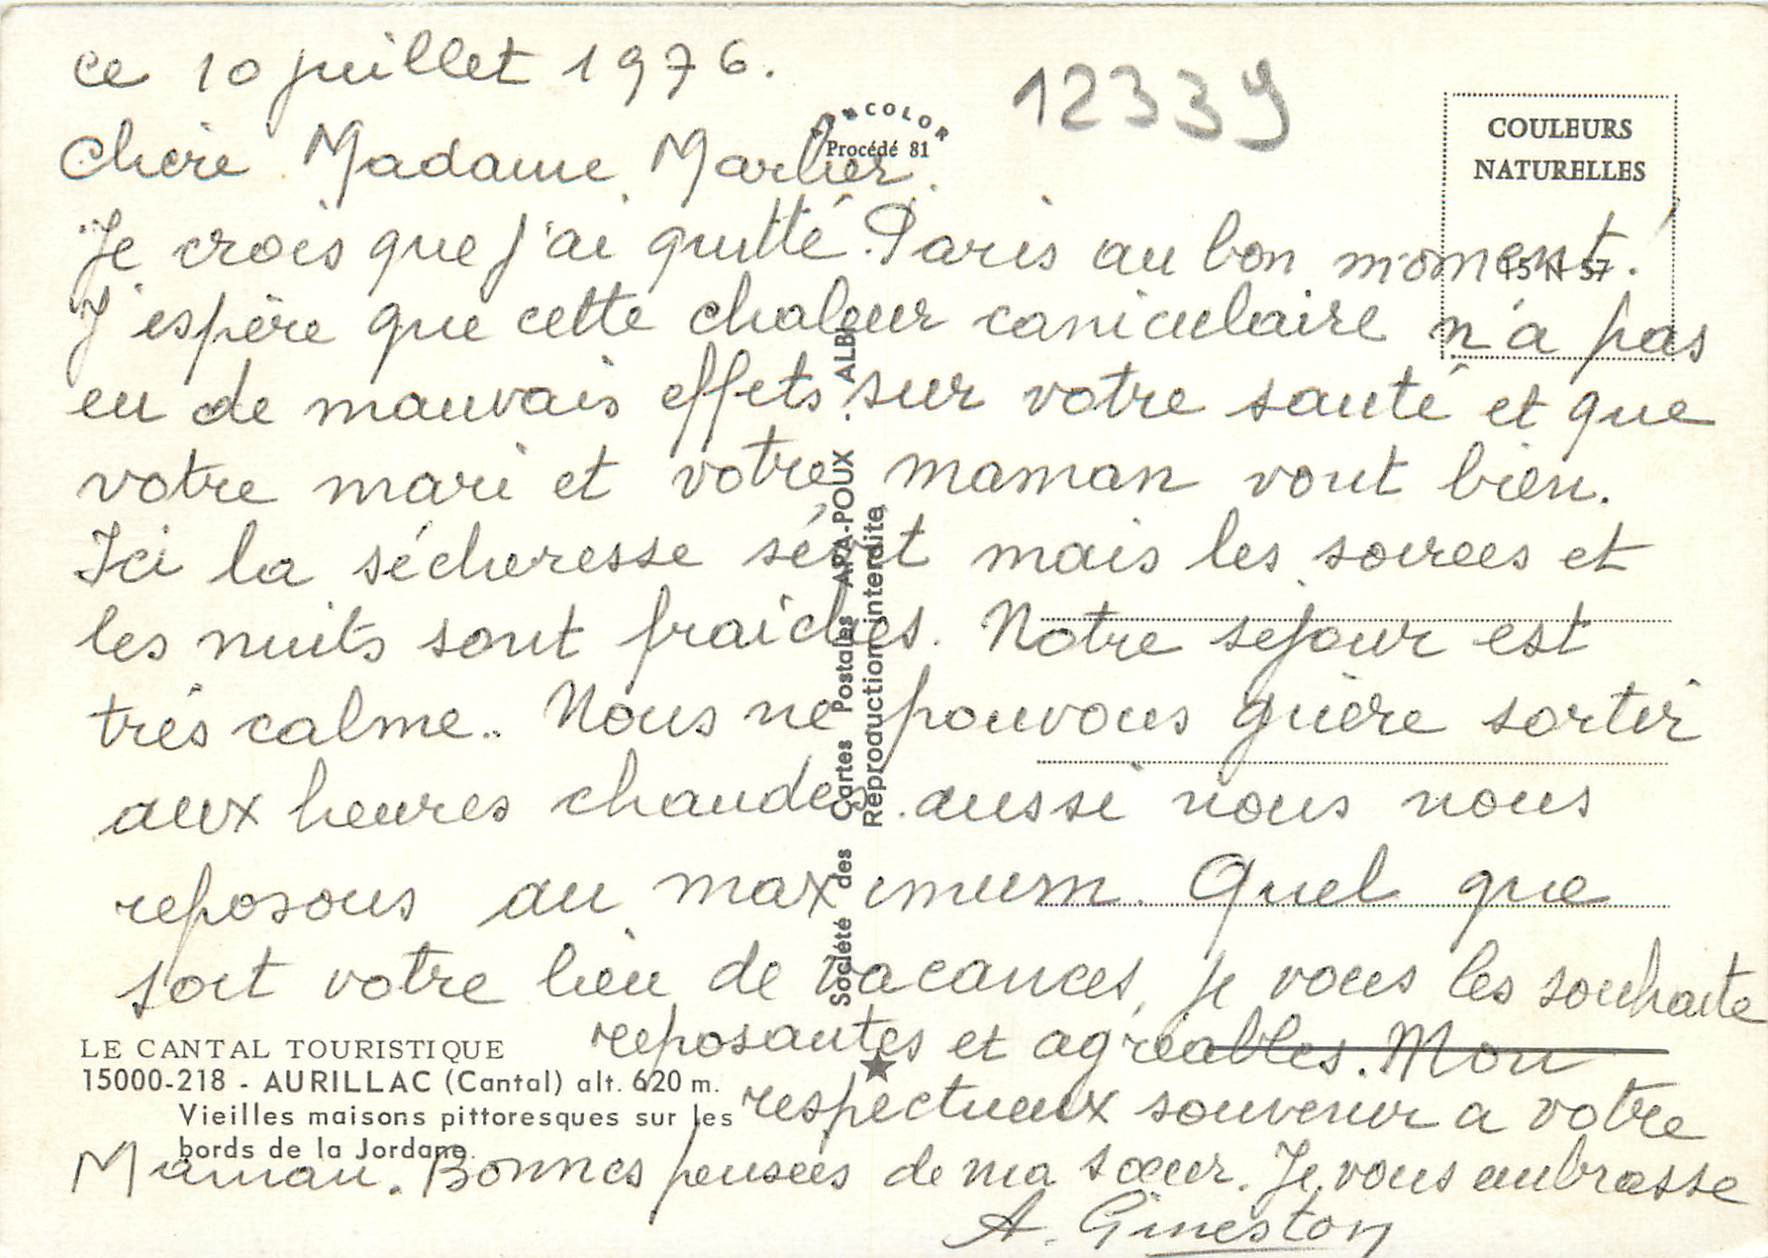 ce 10 juillet 1976.
12339
COLOR
Procédé 81
COULEURS
NATURELLES
15 N 57
Chère Madame Marlier.
Je crois que j'ai quitté Paris au bon moment!
J'espère que cette chaleur caniculaire n'a pas
eu de mauvais effets sur votre santé et que
votre mari et votre maman vont bien.
Ici la sécheresse sévit mais les soirées et
les nuits sont fraiches. Notre séjour est
très calme. Nous ne pouvons guère sortir
aux heures chaudes aussi nous nous
reposons au maximum. Quel que
soit votre lieu de vacances, je vous les souhaite
reposantes et agréables. Mon
respectueux souvenir a votre
Maman. Bonnes pensées de ma sœur. Je vous embrasse
A. Gineston
Société des Cartes Postales APA-POUX - ALBI
Reproduction interdite
LE CANTAL TOURISTIQUE
15000-218 - AURILLAC (Cantal) alt. 620 m.
Vieilles maisons pittoresques sur les
bords de la Jordane.